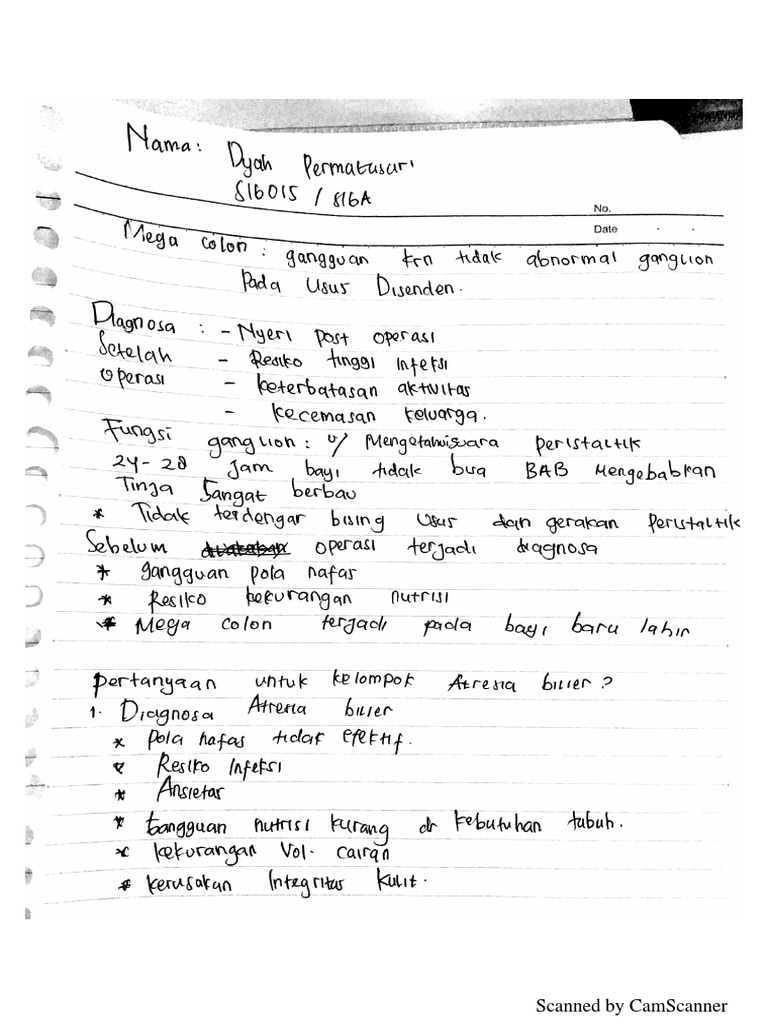 Nama: Dyah Permatasari
S16015 / S16A
No.
Date
Mega colon : gangguan krn tidak abnormal ganglion
Pada Usus Disenden.
Diagnosa : - Nyeri post operasi
Setelah - Resiko tinggi infeksi
Operasi - keterbatasan aktivitas
- kecemasan keluarga.
Fungsi ganglion : u/ peristaltik
24-28 jam bayi tidak bisa BAB Mengebabkan
Tinja Sangat berbau
* Tidak terdengar bising usus dan gerakan peristaltik
Sebelum operasi terjadi diagnosa
* gangguan pola nafas
* Resiko kekurangan nutrisi
* Mega colon terjadi pada bayi baru lahir
pertanyaan untuk kelompok Atresia bilier ?
1. Diagnosa Atresia bilier
* pola nafas tidak efektif.
* Resiko Infeksi
* Ansietas
* Gangguan nutrisi kurang dr kebutuhan tubuh.
* kekurangan Vol. cairan
* kerusakan Integritas kulit.
Scanned by CamScanner